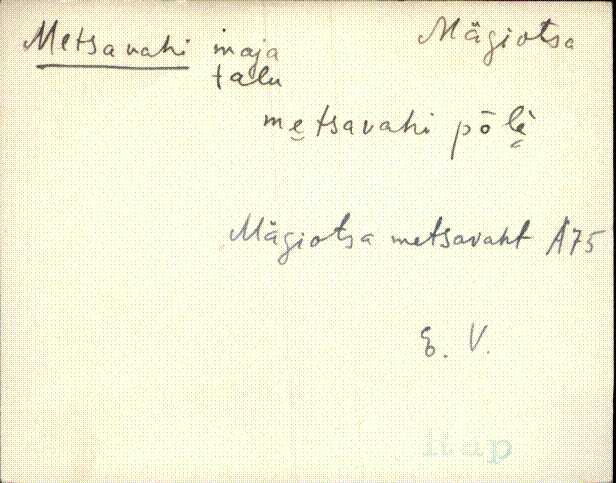 Metsavahi maja Mägiotsa
talu
metsavahi põlè
Mägiotsa metsavaht A75
E. V.